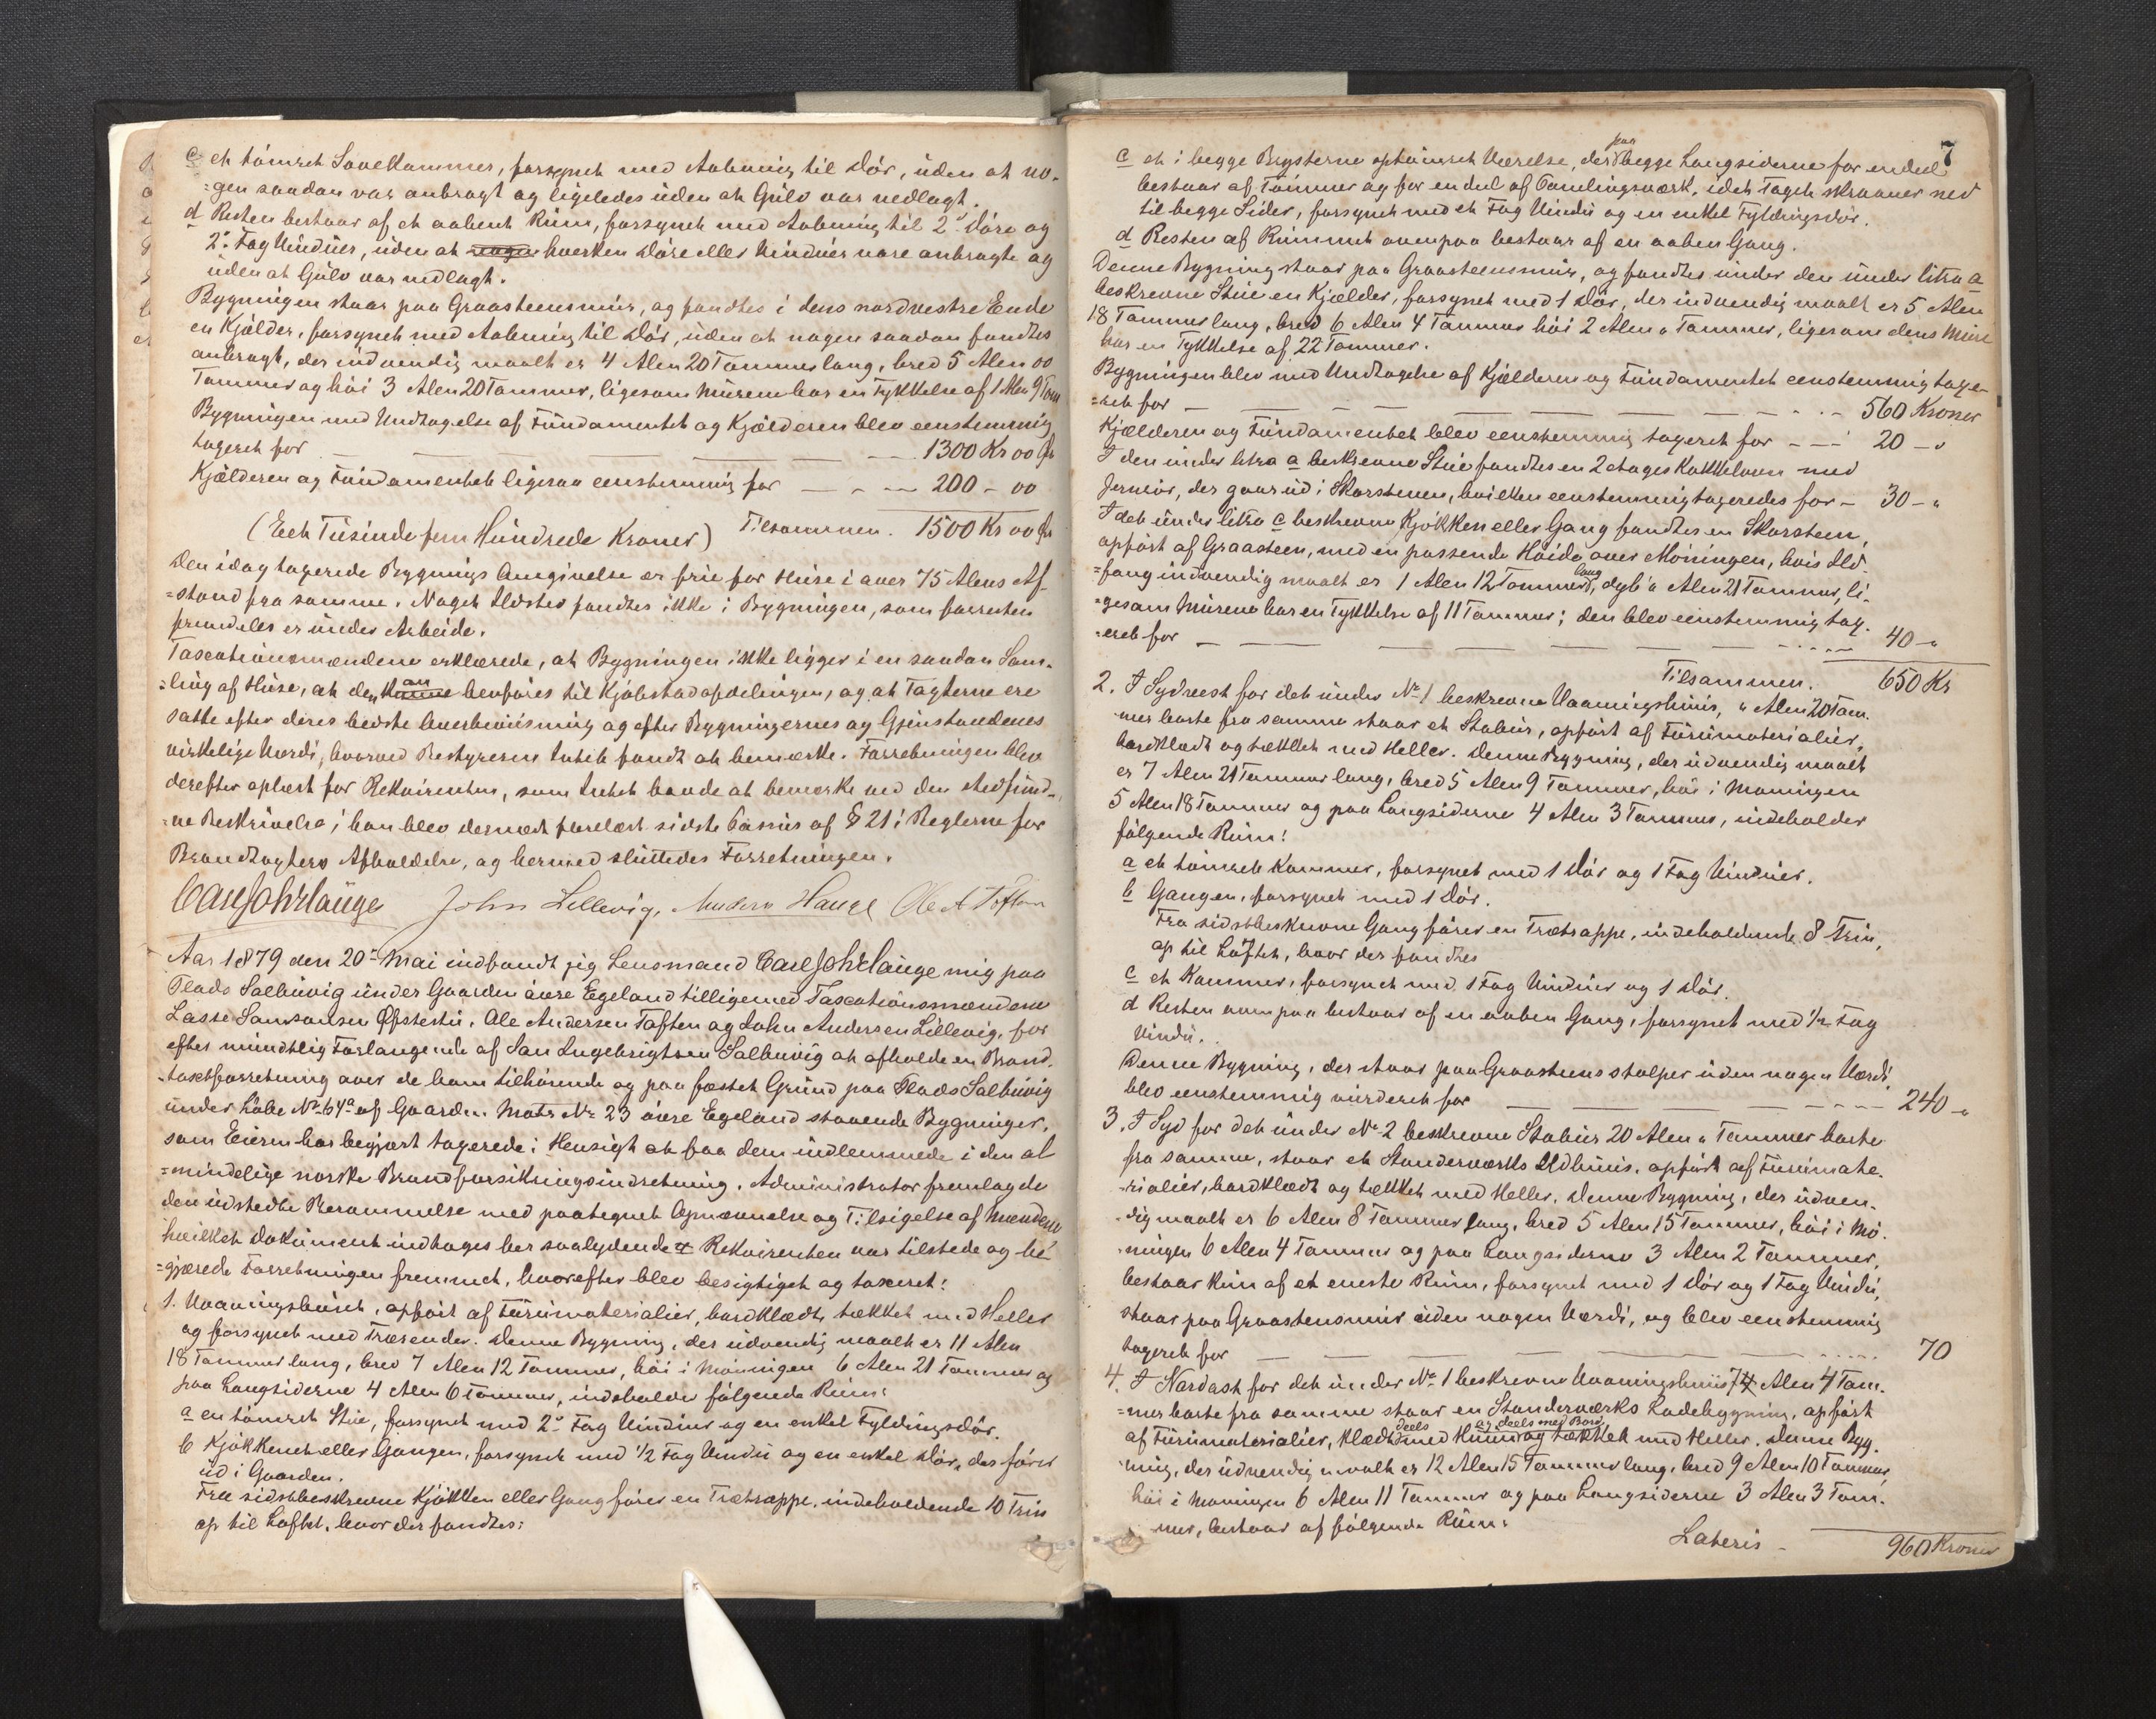 c et tömret Sovekammer, forsynet med Aabning til Dör, uden at no-
=gen saadan var anbragt og ligeledes uden at Gulv var nedlagt.
d Resten bestaar af et aabent Rum, forsynet med Aabning til 2de Döre og
2de Fag Vinduer, uden at nogen hverken Döre eller Vinduer vare anbragte og
uden at Gulv var nedlagt.
Bygningen staar paa Graasteensmur, og fandtes i dens nordvestre Ende
en Kjelder, forsynet med Aabning til Dör, uden at nogen saadan fandtes
anbragt, der indvendig maalt er 4 Alen 20 Tommer lang, bred 5 Alen 00
Tommer og höi 3 Alen 20 Tommer, ligesom Murene har en Tykkelse af 1 Alen 9 Tom
Bygningen med Undtagelse af Fundamentet og Kjælderen blev eenstemmig
taxeret for — — — — 1300 Kr 00 Öre
Kjælderen og Fundamentet ligesaa eenstemmig for — - — 200 - 00
(Eet Tusinde fem Hundrede Kroner) Tilsammen. 1500 Kr 00 Öre
Den idag taxerede Bygnings Omgivelse er frie for Huse i over 75 Alens Af-
=stand fra samme. Noget Ildsted fandtes ikke i Bygningen, som forresten
fremdeles er under Arbeide.
Taxationsmændene erklærede, at Bygningen ikke ligger i en saadan Sam-
=ling af Huse, at den kunne kan henföres til Kjöbstadafdelingen, og at Taxterne ere
satte efter deres bedste Overbeviisning og efter Bygningernes og Gjenstandenes
virkelige Værdi, hvorved Bestyreren Intet fandt at bemærke. Forretningen blev
derefter oplæst for Rekvirenten, som Intet havde at bemærke ved den stedfund-
=ne Beskrivelse; han blev dernæst forelæst sidste Passus af § 21 i Reglerne for
Brandtaxters Afholdelse, og hermed sluttedes Forretningen.
Carl Johr Lange John Lillevig, Anders Hauge Ole A Toften
Aar 1879 den 20de Mai indfandt jeg Lensmand Carl Johr Lange mig paa
Plads Salbuvig under Gaarden övre Egeland tilligemed Taxationsmændene
Lasse Samsonsen Öfstestu, Ole Andersen Toften og John Andersen Lillevig, for
efter mundtlig Forlangende af Jan Ingebrigtsen Salbuvig at afholde en Brand-
-taxtforretning over de ham tilhörende og paa fæstet Grund paa Plads Salbuvig
under Löbe No 64a af Gaarden Matr No 23 övre Egeland staaende Bygninger,
som Eieren har begjært taxerede i Hensigt at faa dem indlemmede i den al-
=mindelige norske Brandforsikringsindretning. Administrator fremlagde
den udstedte Berammelse med paategnet Opnævnelse og Tilsigelse af Mændene
hvilket Dokument indtages her saalydende # Rekvirenten var tilstede og be-
=gjærede Forretningen fremmet, hvorefter blev besigtiget og taxeret:
1. Vaaningshuset, opfört af Furumaterialier, bordklædt, tækket med Heller
og forsynet med Træsender. Denne Bygning, der udvendig maalt er 11 Alen
18 Tommer lang, bred 7 Alen 12 Tommer, höi i Möningen 6 Alen 21 Tommer og
paa Langsiderne 4 Alen 6 Tommer, indeholder fölgende Rum:
a en tömret Stue, forsynet med 2de Fag Vinduer og en enkel Fyldingsdör.
b Kjökkenet eller Gangen, forsynet med 1/2 Fag Vindu og en enkel Dör, der förer
ud i Gaarden.
Fra sidstbeskrevne Kjökken eller Gang förer en Trætrappe, indeholdende 10 Trin
op til Loftet, hvor der fandtes:
7
c et i begge Brysterne optömret Værelse, der paa begge Langsiderne for endeel
bestaar af Tömmer og for en deel af Panelingsværk, idet Taget skraaner ned
til begge Sider, forsynet med et Fag Vindu og en enkel Fyldingsdör.
d Resten af Rummet ovenpaa bestaar af en aaben Gang.
Denne Bygning staar paa Graasteensmur, og fandtes under den under litra a
beskrevne Stue en Kjælder, forsynet med 1 Dör, der indvendig maalt er 5 Alen
18 Tommer lang, bred 6 Alen 4 Tommer höi 2 Alen " Tommer, ligesom dens Mure
har en Tykkelse af 22 Tommer.
Bygningen blev med Undtagelse af Kjælderen og Fundamentet eenstemmig taxe-
=ret for — — — — — — 560 Kroner
Kjælderen og Fundamentet blev eenstemmig taxeret for - — 20 - "
I den under litra a beskrevne Stue fandtes en 2 etages Kakkelovn med
Jernrör, der gaar ud i Skorstenen, hvilken eenstemmig taxeredes for - 30 - "
I det under litra c beskrevne Kjökken eller Gang fandtes en Skorsteen,
opfört af Graasteen, med en passende Höide over Möningen, hvis Ild-
=fang indvendig maalt er 1 Alen 12 Tommer lang, dyb " Alen 21 Tommer, li-
=gesom Murene har en Tykkelse af 11 Tommer; den blev eenstemmig tax-
=eret for — — — — — 40 - "
Tilsammen. 650 Kr
2. I Sydvest for det under No 1 beskrevne Vaaningshuus, " Alen 20 Tom-
mer borte fra samme staar et Stabur, opfört af Furumaterialier,
bordklædt og tækket med Heller. Denne Bygning, der udvendig maalt
er 7 Alen 21 Tommer lang, bred 5 Alen 9 Tommer, höi i Möningen
5 Alen 18 Tommer og paa Langsiderne 4 Alen 3 Tommer, indeholder
fölgende Rum:
a et tömret Kammer, forsynet med 1 Dör og 1 Fag Vinduer.
b Gangen, forsynet med 1 Dör.
Fra sidstbeskrevne Gang förer en Trætrappe, indeholdende 8 Trin,
op til Loftet, hvor der fandtes
c et Kammer, forsynet med 1 Fag Vinduer og 1 Dör.
d Resten ovenpaa bestaar af en aaben Gang, forsynet med 1/2 Fag
Vindu.
Denne Bygning, der staar paa Graasteens stolper uden nogen Værdi,
blev eenstemmig vurderet for — — — — 240 - "
3. I Syd for det under No 2 beskrevne Stabur 20 Alen " Tommer borte
fra samme, staar et Standerværks Ildhuus, opfört af Furumate-
-rialier, bordklædt og tækket med Heller. Denne Bygning, der udven-
-dig maalt er 6 Alen 8 Tommer lang, bred 5 Alen 15 Tommer, höi i Mö-
-ningen 6 Alen 4 Tommer og paa Langsiderne 3 Alen 2 Tommer,
bestaar kun af et eneste Rum, forsynet med 1 Dör og 1 Fag Vindu,
staar paa Graasteensmur uden nogen Værdi, og blev eenstemmig
taxeret for — — — — 70
4. I Nordost for det under No 1 beskrevne Vaaningshuus 74 Alen 4 Tom-
=mer borte fra samme staar en Standerværks Ladebygning, opfört
af Furumaterialier, klædt deels med Huun og deels med Bord og tækket med Heller. Denne Byg-
ning, der udvendig maalt er 12 Alen 15 Tommer lang, bred 9 Alen 10 Tommer,
höi i Möningen 6 Alen 11 Tommer og paa Langsiderne 3 Alen 3 Tom-
mer, bestaar af fölgende Rum:
Lateris - 960 Kroner